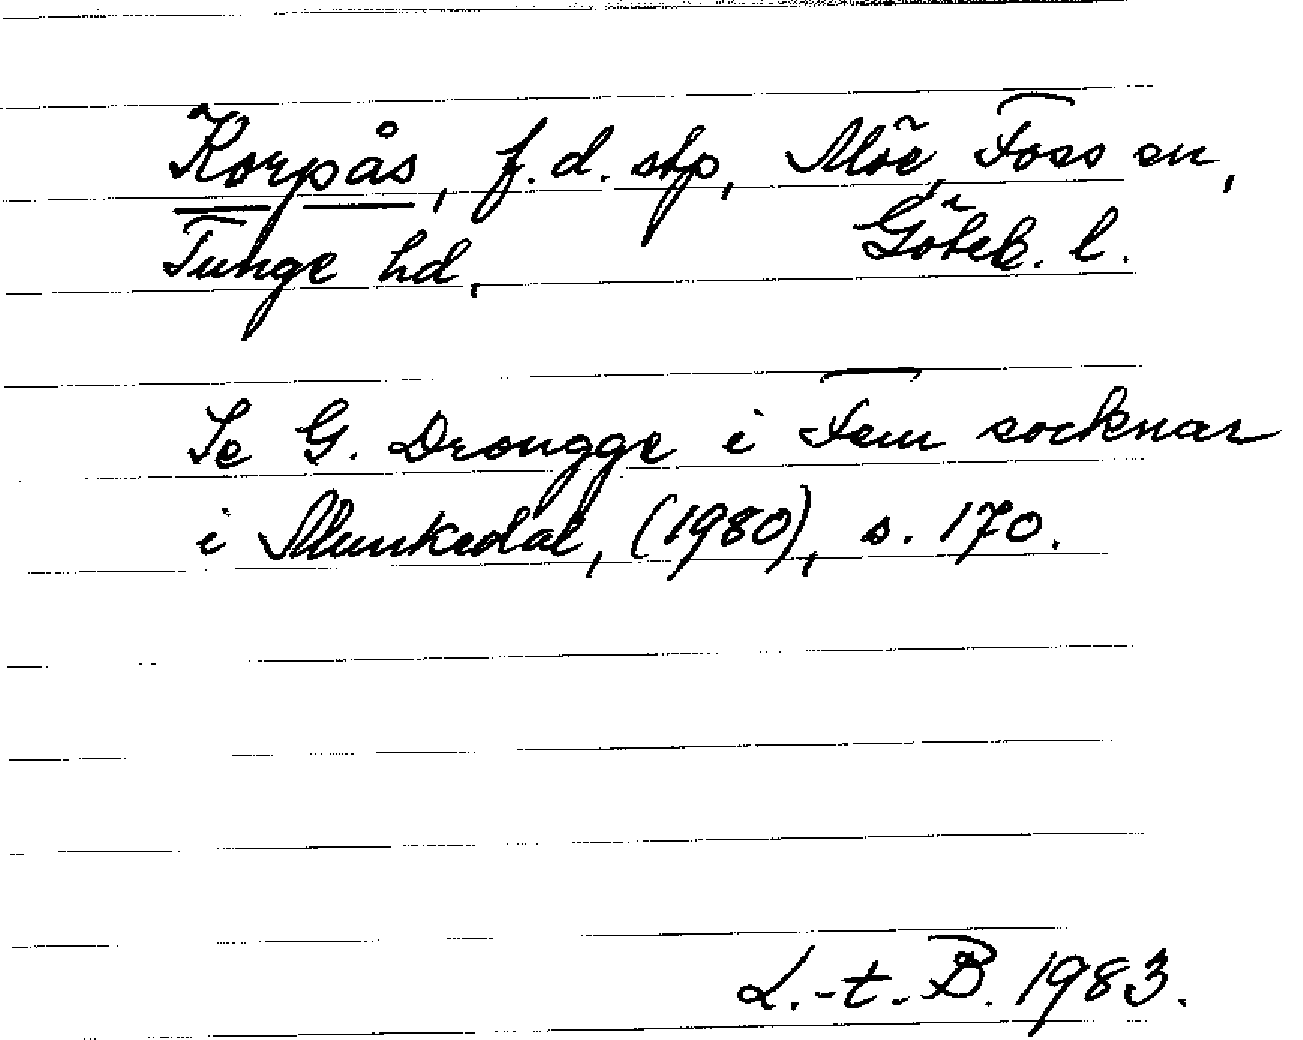 Korpås, f.d. stp, Möe, Foss sn,
Tunge hd, Göteb. l.
Se G. Drougge i Fem socknar
i Munkedal, (1980), s. 170.
L.-t. B. 1983.